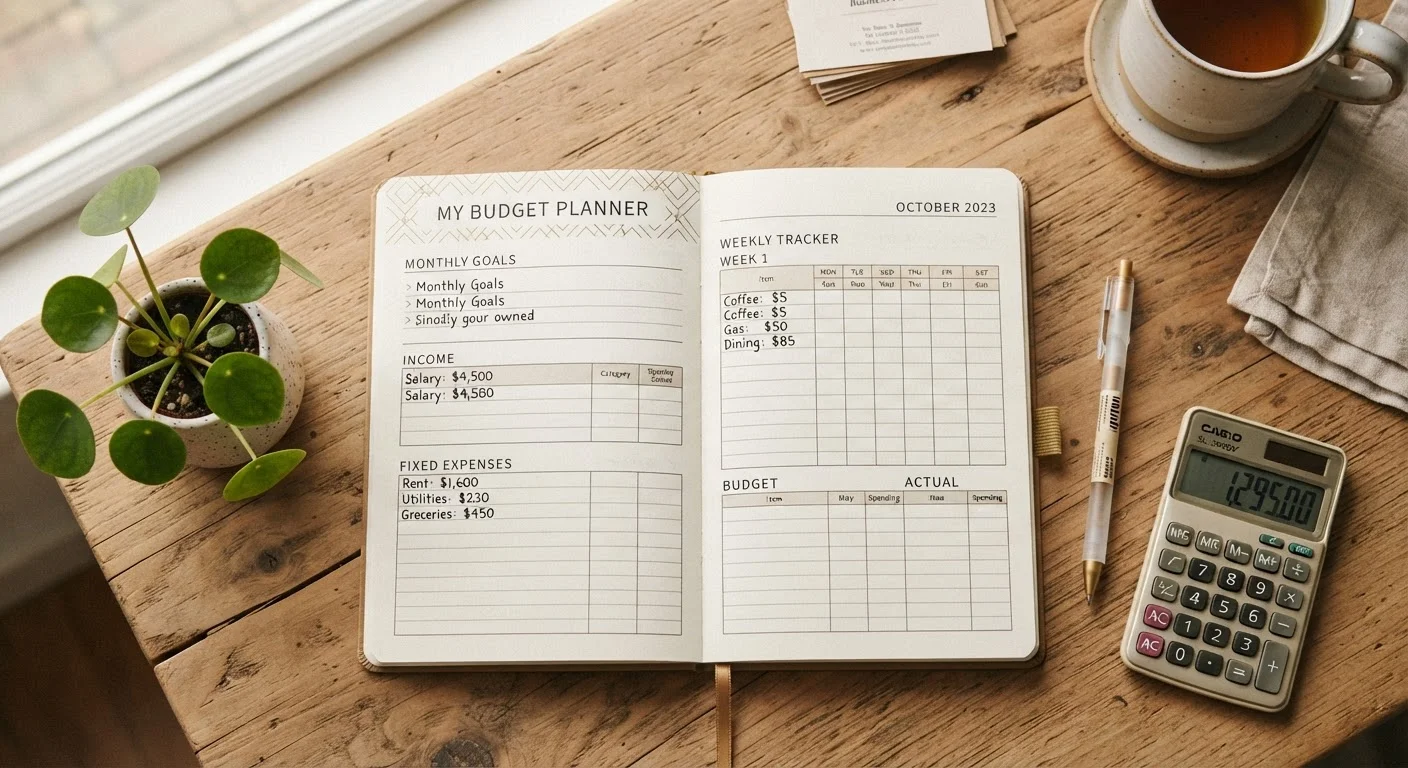 MY BUDGET PLANNER
MONTHLY GOALS
> Monthly Goals
> Monthly Goals
> Sinodly your owned
INCOME
Salary: $4,500
Salary: $4,560
FIXED EXPENSES
Rent· $1,600
Utilities: $230
Greceries: $450
OCTOBER 2023
WEEKLY TRACKER
WEEK 1
Item MON THU
Coffse: $5
Coffee: $5
Gas: $50
Dining: $85
BUDGET ACTUAL
Item May Spending Spending
CASIO
1,295.00
MR M-
7 8 9 ×
4 5 6 −
AC 1 2 3 +
AC 0 · =